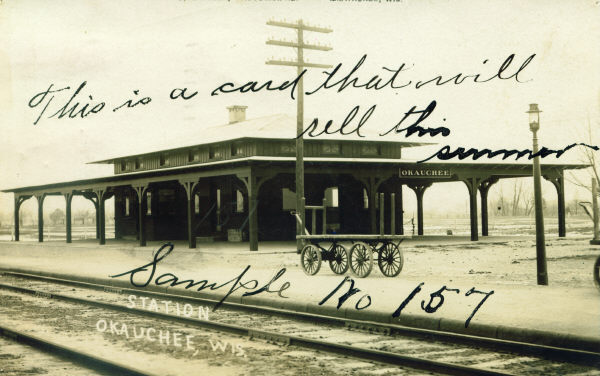 This is a card that will
sell this
summer
OKAUCHEE
Sample No 157
STATION
OKAUCHEE, WIS.